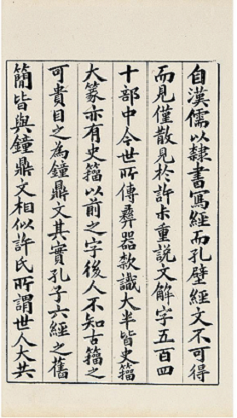 自漢儒以隸書寫經而孔壁經文不可得
而見僅散見於許未重說文解字五百四
十部中今世所傳彝器款識大半皆史籀
大篆亦有史籀以前之字後人不知古籀之
可貴目之為鐘鼎文其實孔子六經之舊
簡皆與鐘鼎文相似許氏所謂世人大共